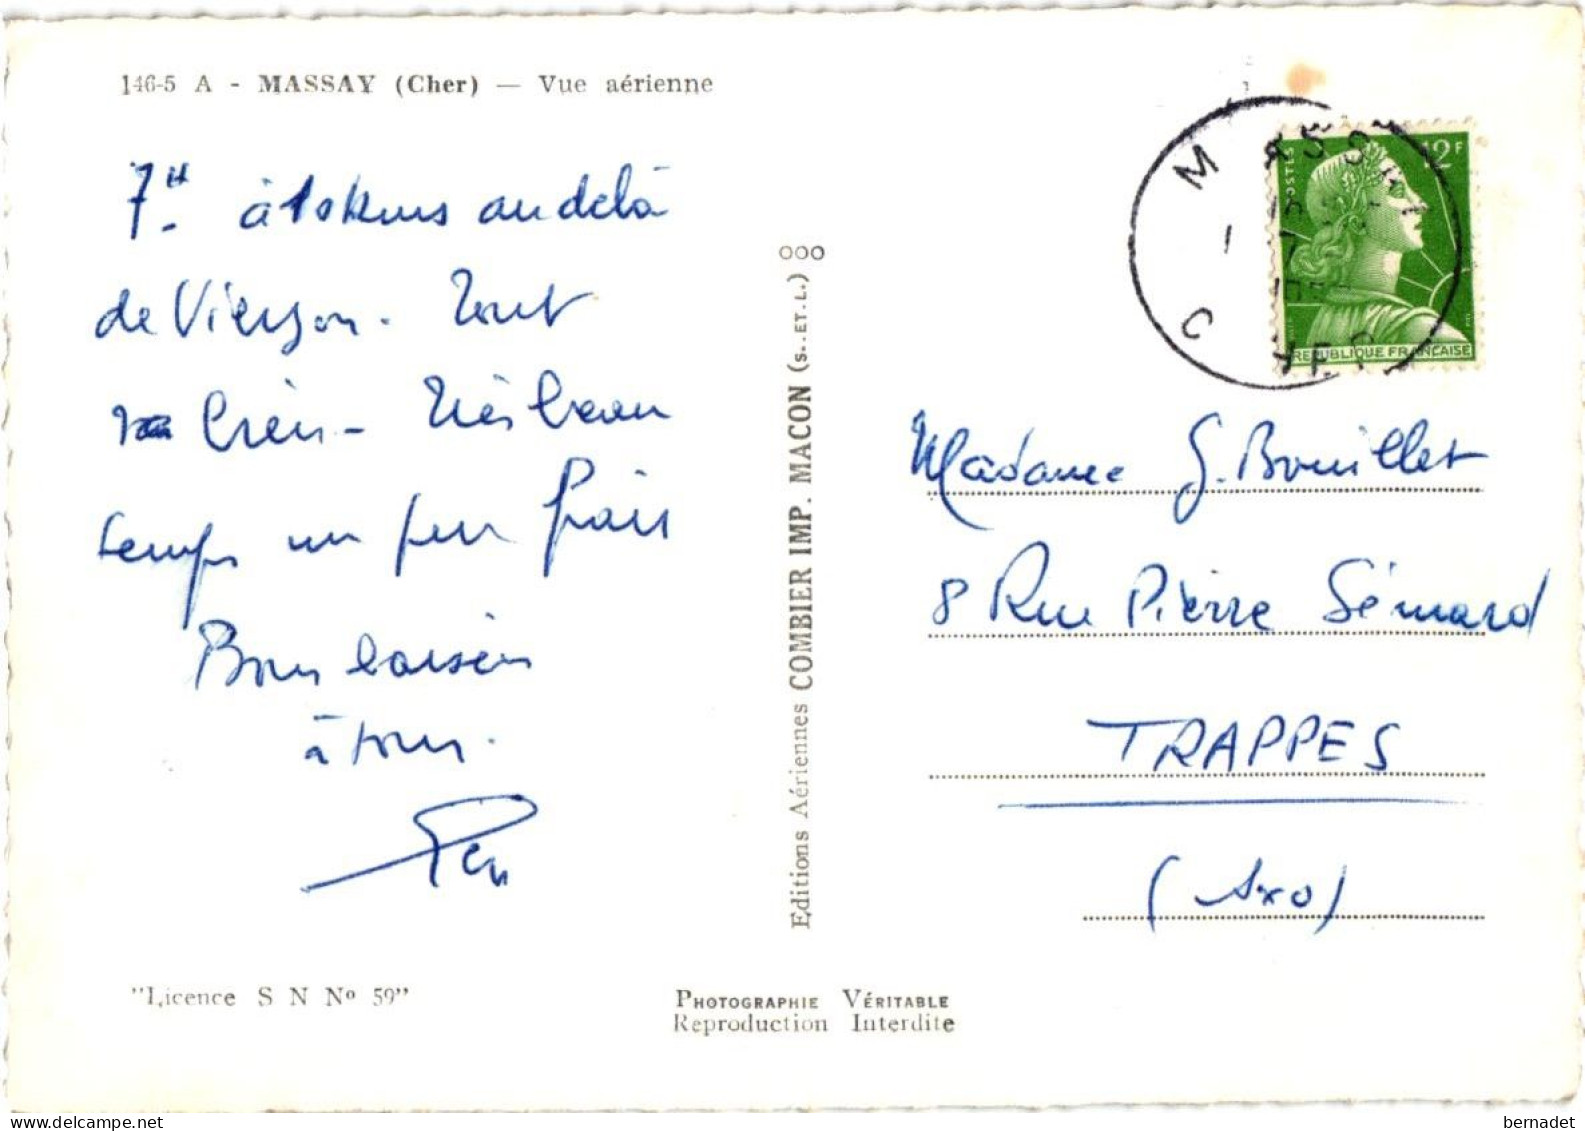 146-5 A - MASSAY (Cher) — Vue aérienne
7H - à 10 kms au delà
de Vierzon. Tout
va bien - Très beau
temps un peu frais
Bons baisers
à tous.
MASSAY
CHER
POSTES
12F
REPUBLIQUE FRANÇAISE
Editions Aériennes COMBIER IMP. MACON (S.-ET-L.)
Madame G. Bouillet
8 Rue Pierre Sémard
TRAPPES
(SxO)
"Licence S N Nº 59"
PHOTOGRAPHIE VÉRITABLE
Reproduction Interdite
bernadet